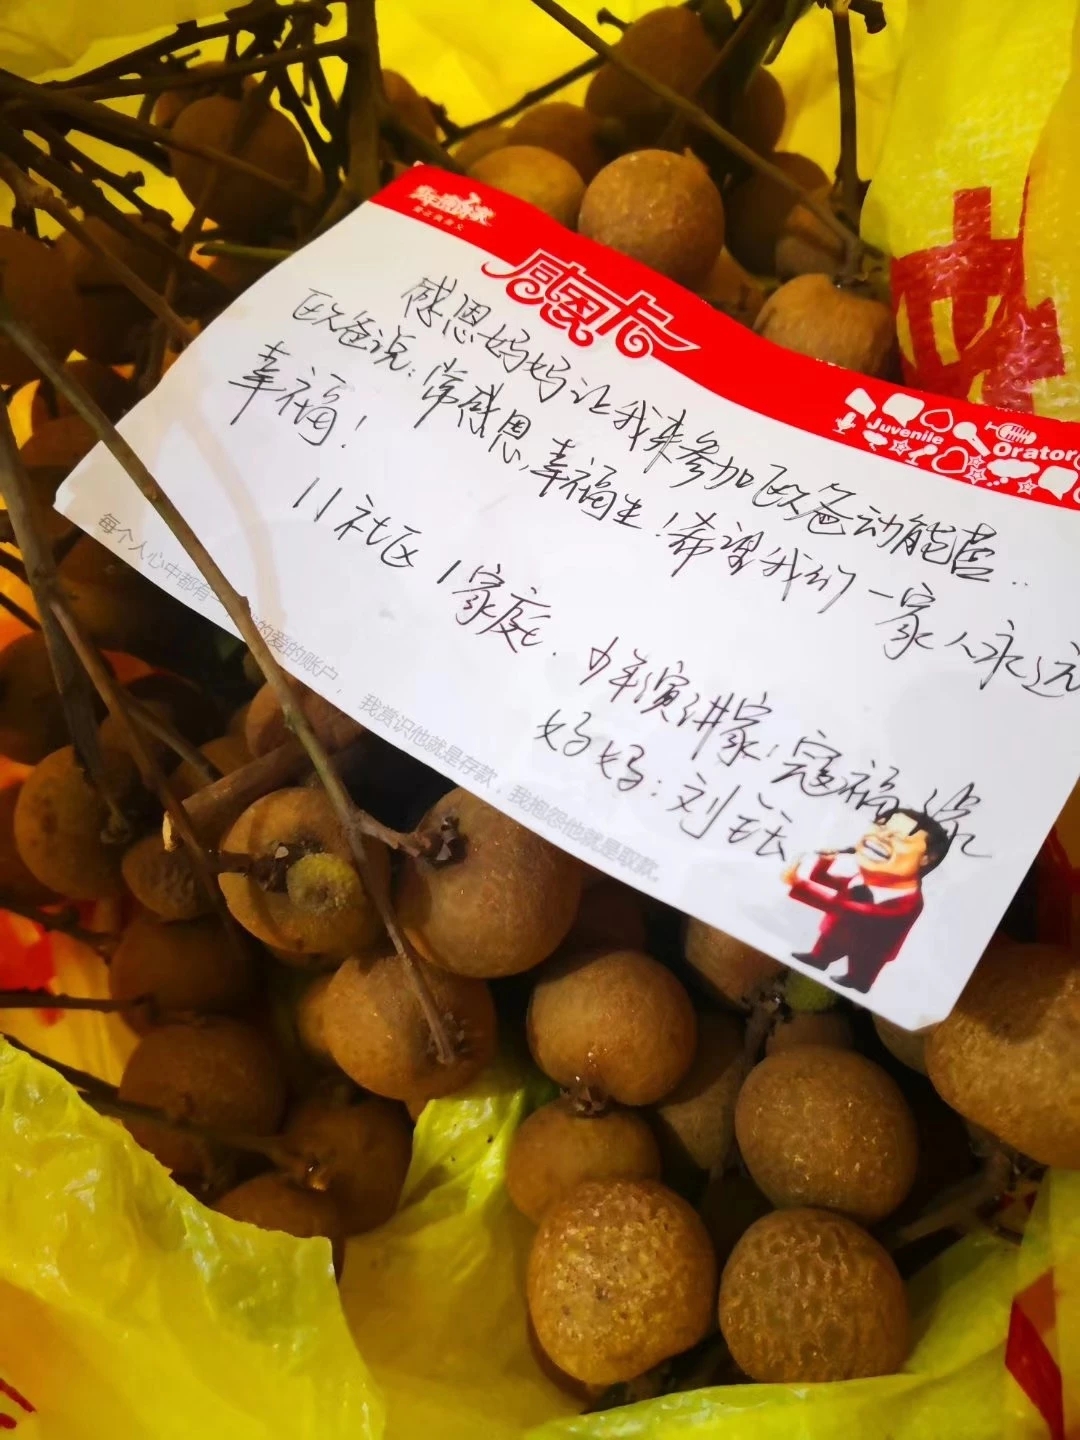 少年演讲家
感恩卡
Juvenile
Orator
感恩妈妈让我来参加欧爸动能营..
欧爸说：常感恩，幸福生！希望我们一家人永远
幸福！
11社区1家庭．少年演讲家：寇福
妈妈：刘
每个人心中都有一的爱的账户，我赏识他就是存款，我抱怨他就是取款。